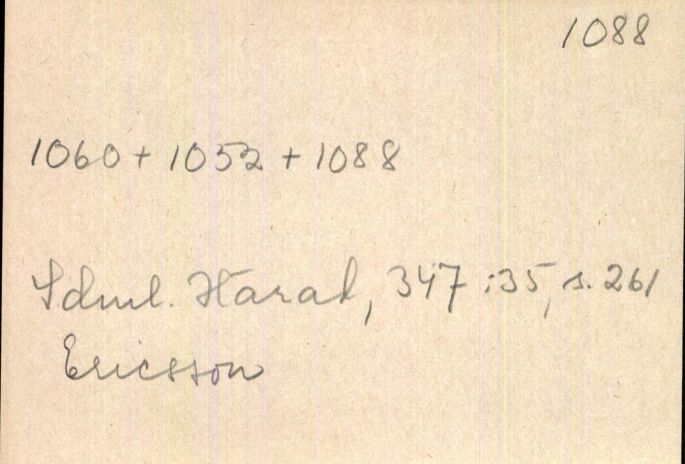 1088
1060 + 1052 + 1088
Sdml. Harad, 347:35, s. 261
Ericsson